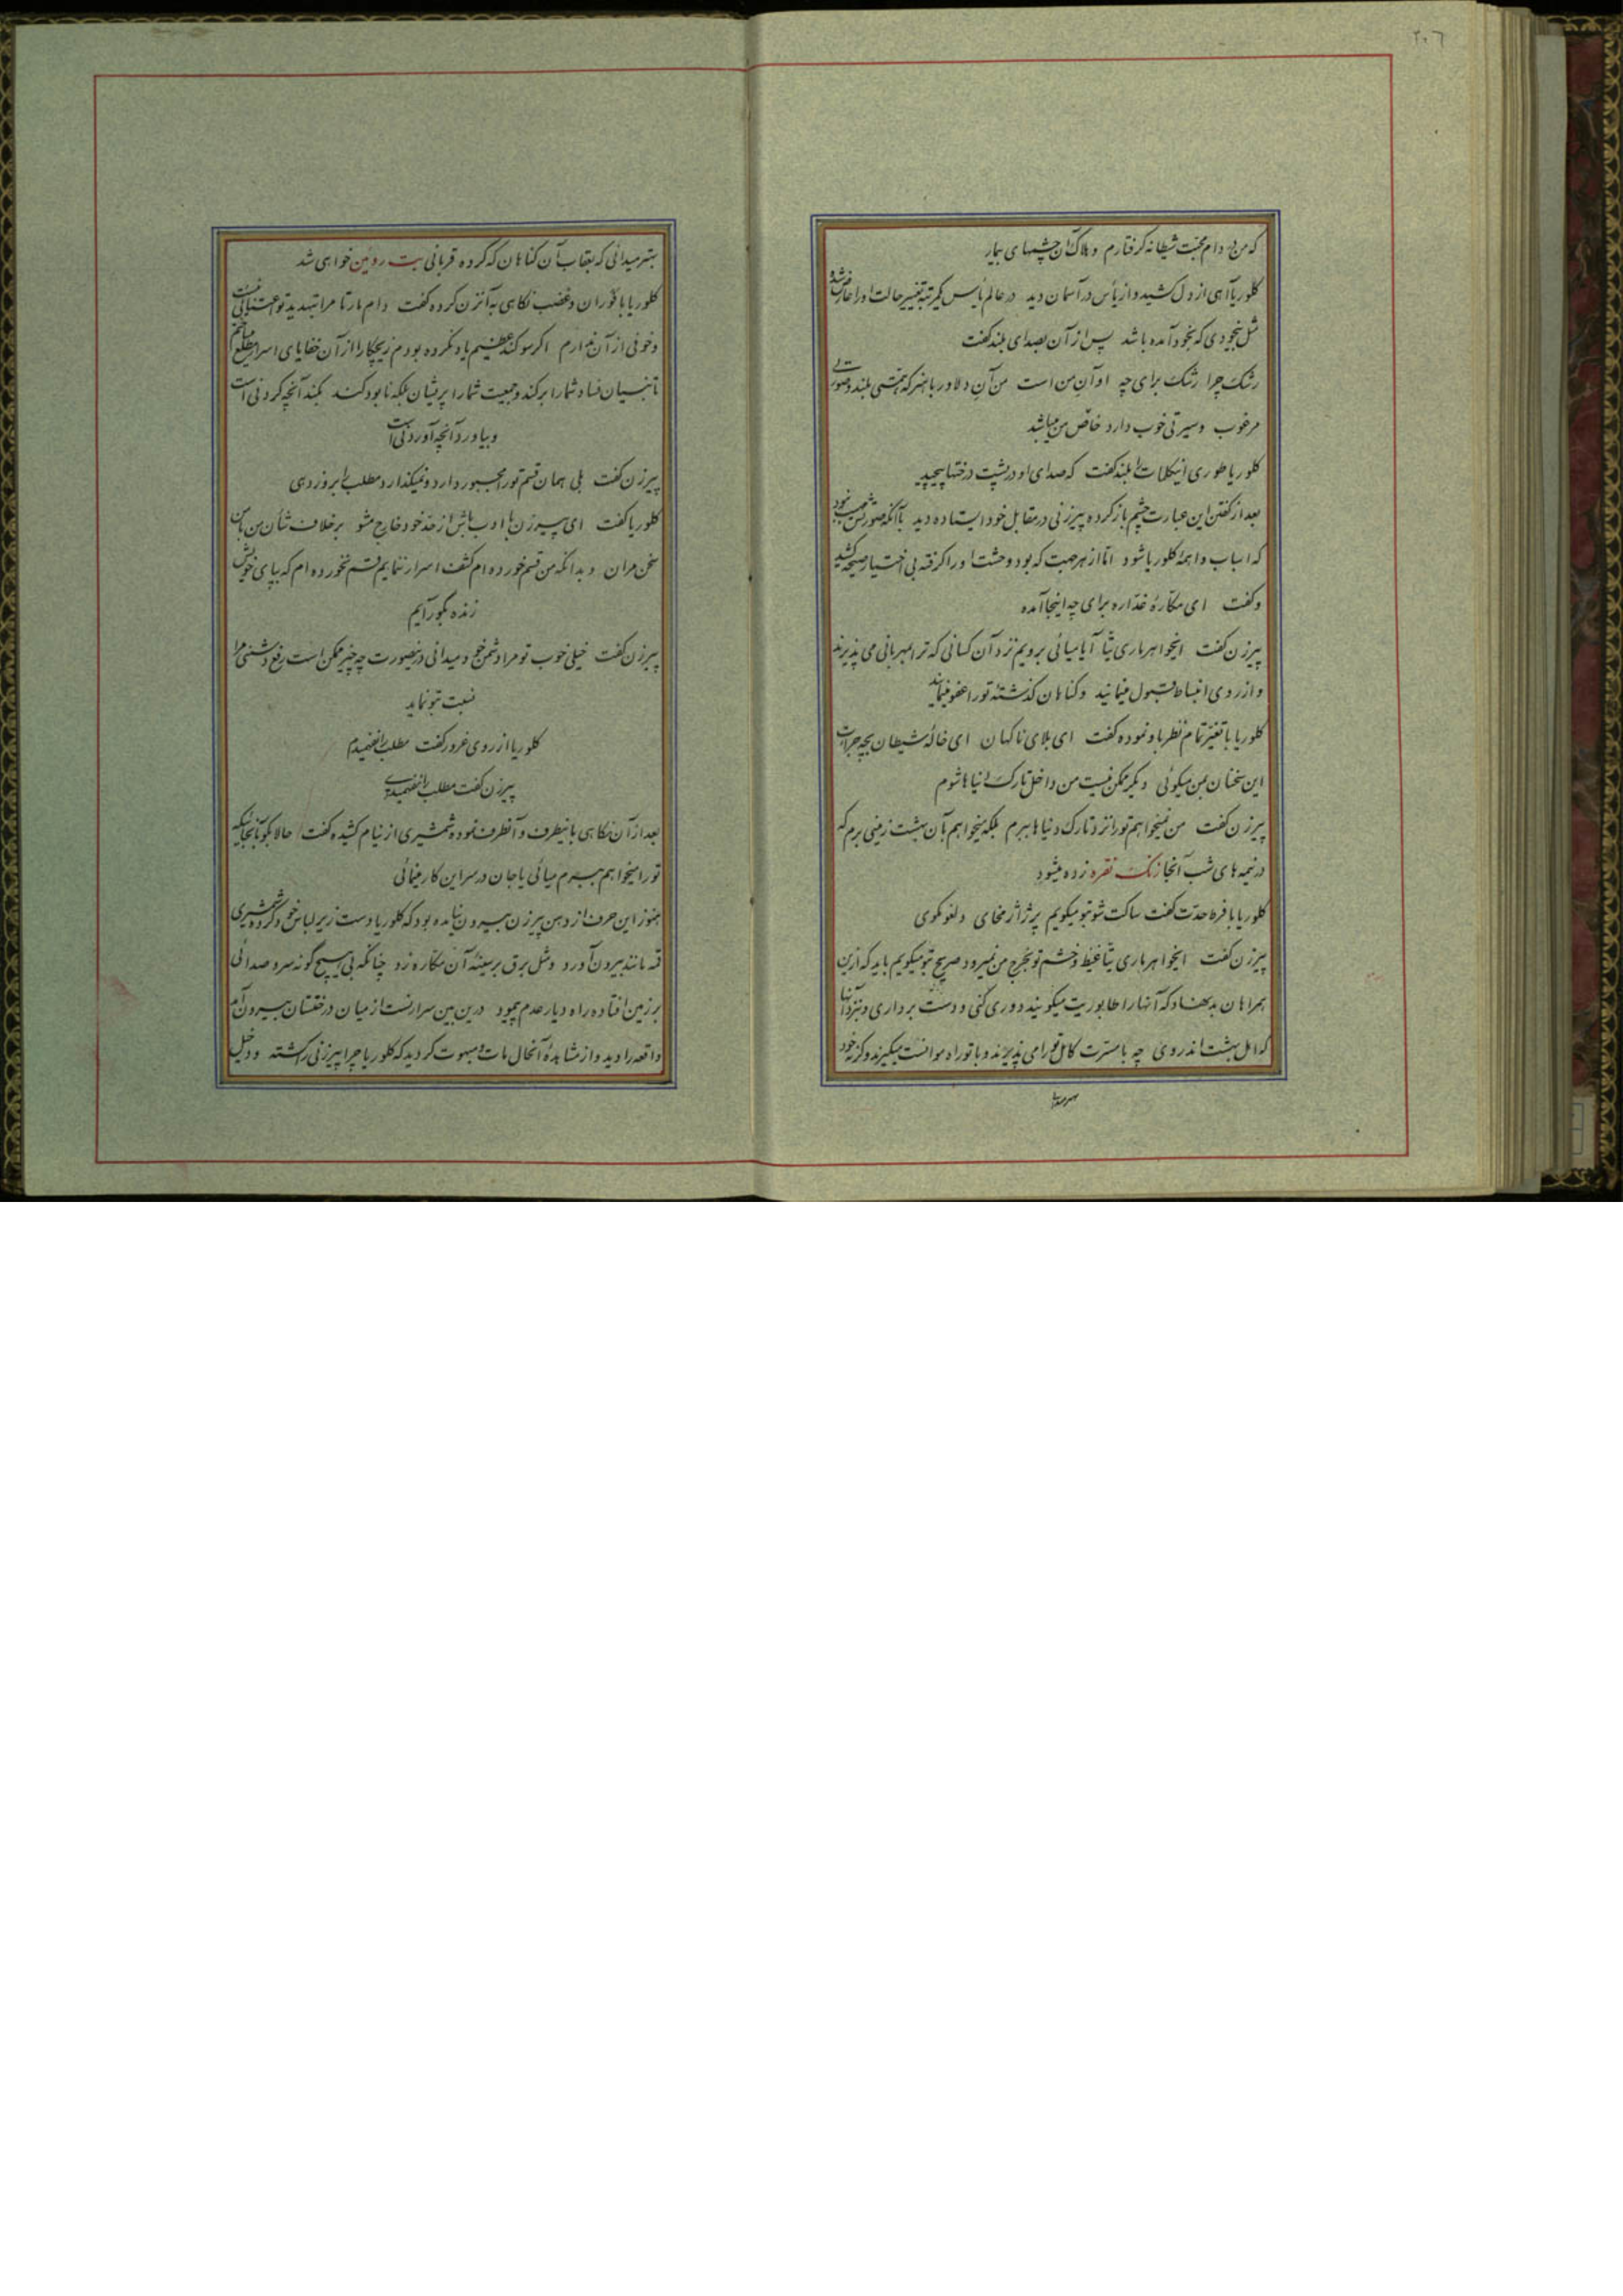 ۲۰۶
که من در دام محبت شیطانه گرفتارم و هلاک آن چشمهای بیمار
کلوریا آهی از دل کشید و از یأس در آسمان دید در عالم یأس یکمرتبه تغییر حالت او را عارض شد
مثل بیخودی که بخود آمده باشد پس از آن بصدای بلند گفت
رشک چرا رشک برای چه او آن من است من آن دلاور با هنر که همتی بلند و صورتی
مرغوب و سیرتی خوب دارد خاص من میباشد
کلوریا طوری این کلمات را بلند گفت که صدای او در پشت درختها پیچید
بعد از گفتن این عبارت چشم باز کرده پیرزنی در مقابل خود ایستاده دید با آنکه صورتش نبود
که اسباب واهمه کلوریا شود اما از هر جهت که بود وحشت او را گرفته بی اختیار صیحه کشید
و گفت ای مکاره غداره برای چه اینجا آمده
پیرزن گفت ایخواهر ماری تتا آیا میائی برویم نزد آن کسانی که ترا بمهربانی می پذیرند
و از روی انبساط قبول مینمایند و گناهان گذشته تو را عفو مینمایند
کلوریا با تغیر تمام نظر باو نموده گفت ای بلای ناگهان ای خاله شیطان بچه جرأت
این سخنان بمن میگوئی دیگر ممکن نیست من داخل تارک دنیاها شوم
پیرزن گفت من نمیخواهم تو را نزد تارک دنیاها ببرم بلکه میخواهم بآن بهشت زمینی برم که
در نیمه های شب آنجا زنگ نقره زده میشود
کلوریا با فرط حدت گفت ساکت شو بتو میگویم پر ژاژ مخای و لغو مگوی
پیرزن گفت ایخواهر ماری تتا غیظ و خشم تو بخرج من نمیرود صریح بتو میگویم باید که ازین
همراهان بدنهاد که آنها را طابوریت میگویند دوری کنی و دست برداری و نزد آنها
که اهل بهشت اند روی چه با مسرت کامل تو را می پذیرند و با تو راه موانست میگیرند و گرنه خود
بهتر میدانی که بعقاب آن گناهان که کرده قربانی بت روئین خواهی شد
کلوریا با فوران و غضب نگاهی به آنزن کرده گفت دام مارتا مرا بتهدید تو اعتنائی نیست
و خوفی از آن ندارم اگر سوگند عظیم یاد نکرده بودم زیچکا را از آن خفایای اسرار مطلع میساختم
تا بنیان فساد شما را برکند و جمعیت شما را پریشان بلکه نابود کند بکند آنچه کردنی است
و بیاورد آنچه آوردنی است
پیرزن گفت بلی همان قسم تو را مجبور دارد و نمیگذارد مطلب را بروز دهی
کلوریا گفت ای پیرزن با ادب باش از حد خود خارج مشو برخلاف شأن من با من
سخن مران و بدانکه من قسم خورده ام کشف اسرار ننمایم قسم نخورده ام که بپای خویش
زنده بگور آیم
پیرزن گفت خیلی خوب تو مرا دشمن خود میدانی در اینصورت چه چیز ممکن است رفع دشمنی مرا
نسبت بتو نماید
کلوریا از روی غرور گفت مطلب را نفهمیدم
پیرزن گفت مطلب را نفهمیدی
بعد از آن نگاهی باینطرف و آنطرف نموده شمشیری از نیام کشیده گفت حالا بگو بآنجائیکه
تو را میخواهم ببرم میائی یا جان در سر این کار مینمائی
هنوز این حرف از دهن پیرزن بیرون نیامده بود که کلوریا دست زیر لباس خود کرده شمشیری
قمه مانند بیرون آورد و مثل برق بر سینه آن مکاره زد چنانکه بی هیچ گونه سر و صدائی
بر زمین افتاده راه دیار عدم پیمود درین بین سر ارنست از میان درختستان بیرون آمد
واقعه را دید و از مشاهده آنحال مات و مبهوت گردید که کلوریا چرا پیرزنی را کشته و دخیل